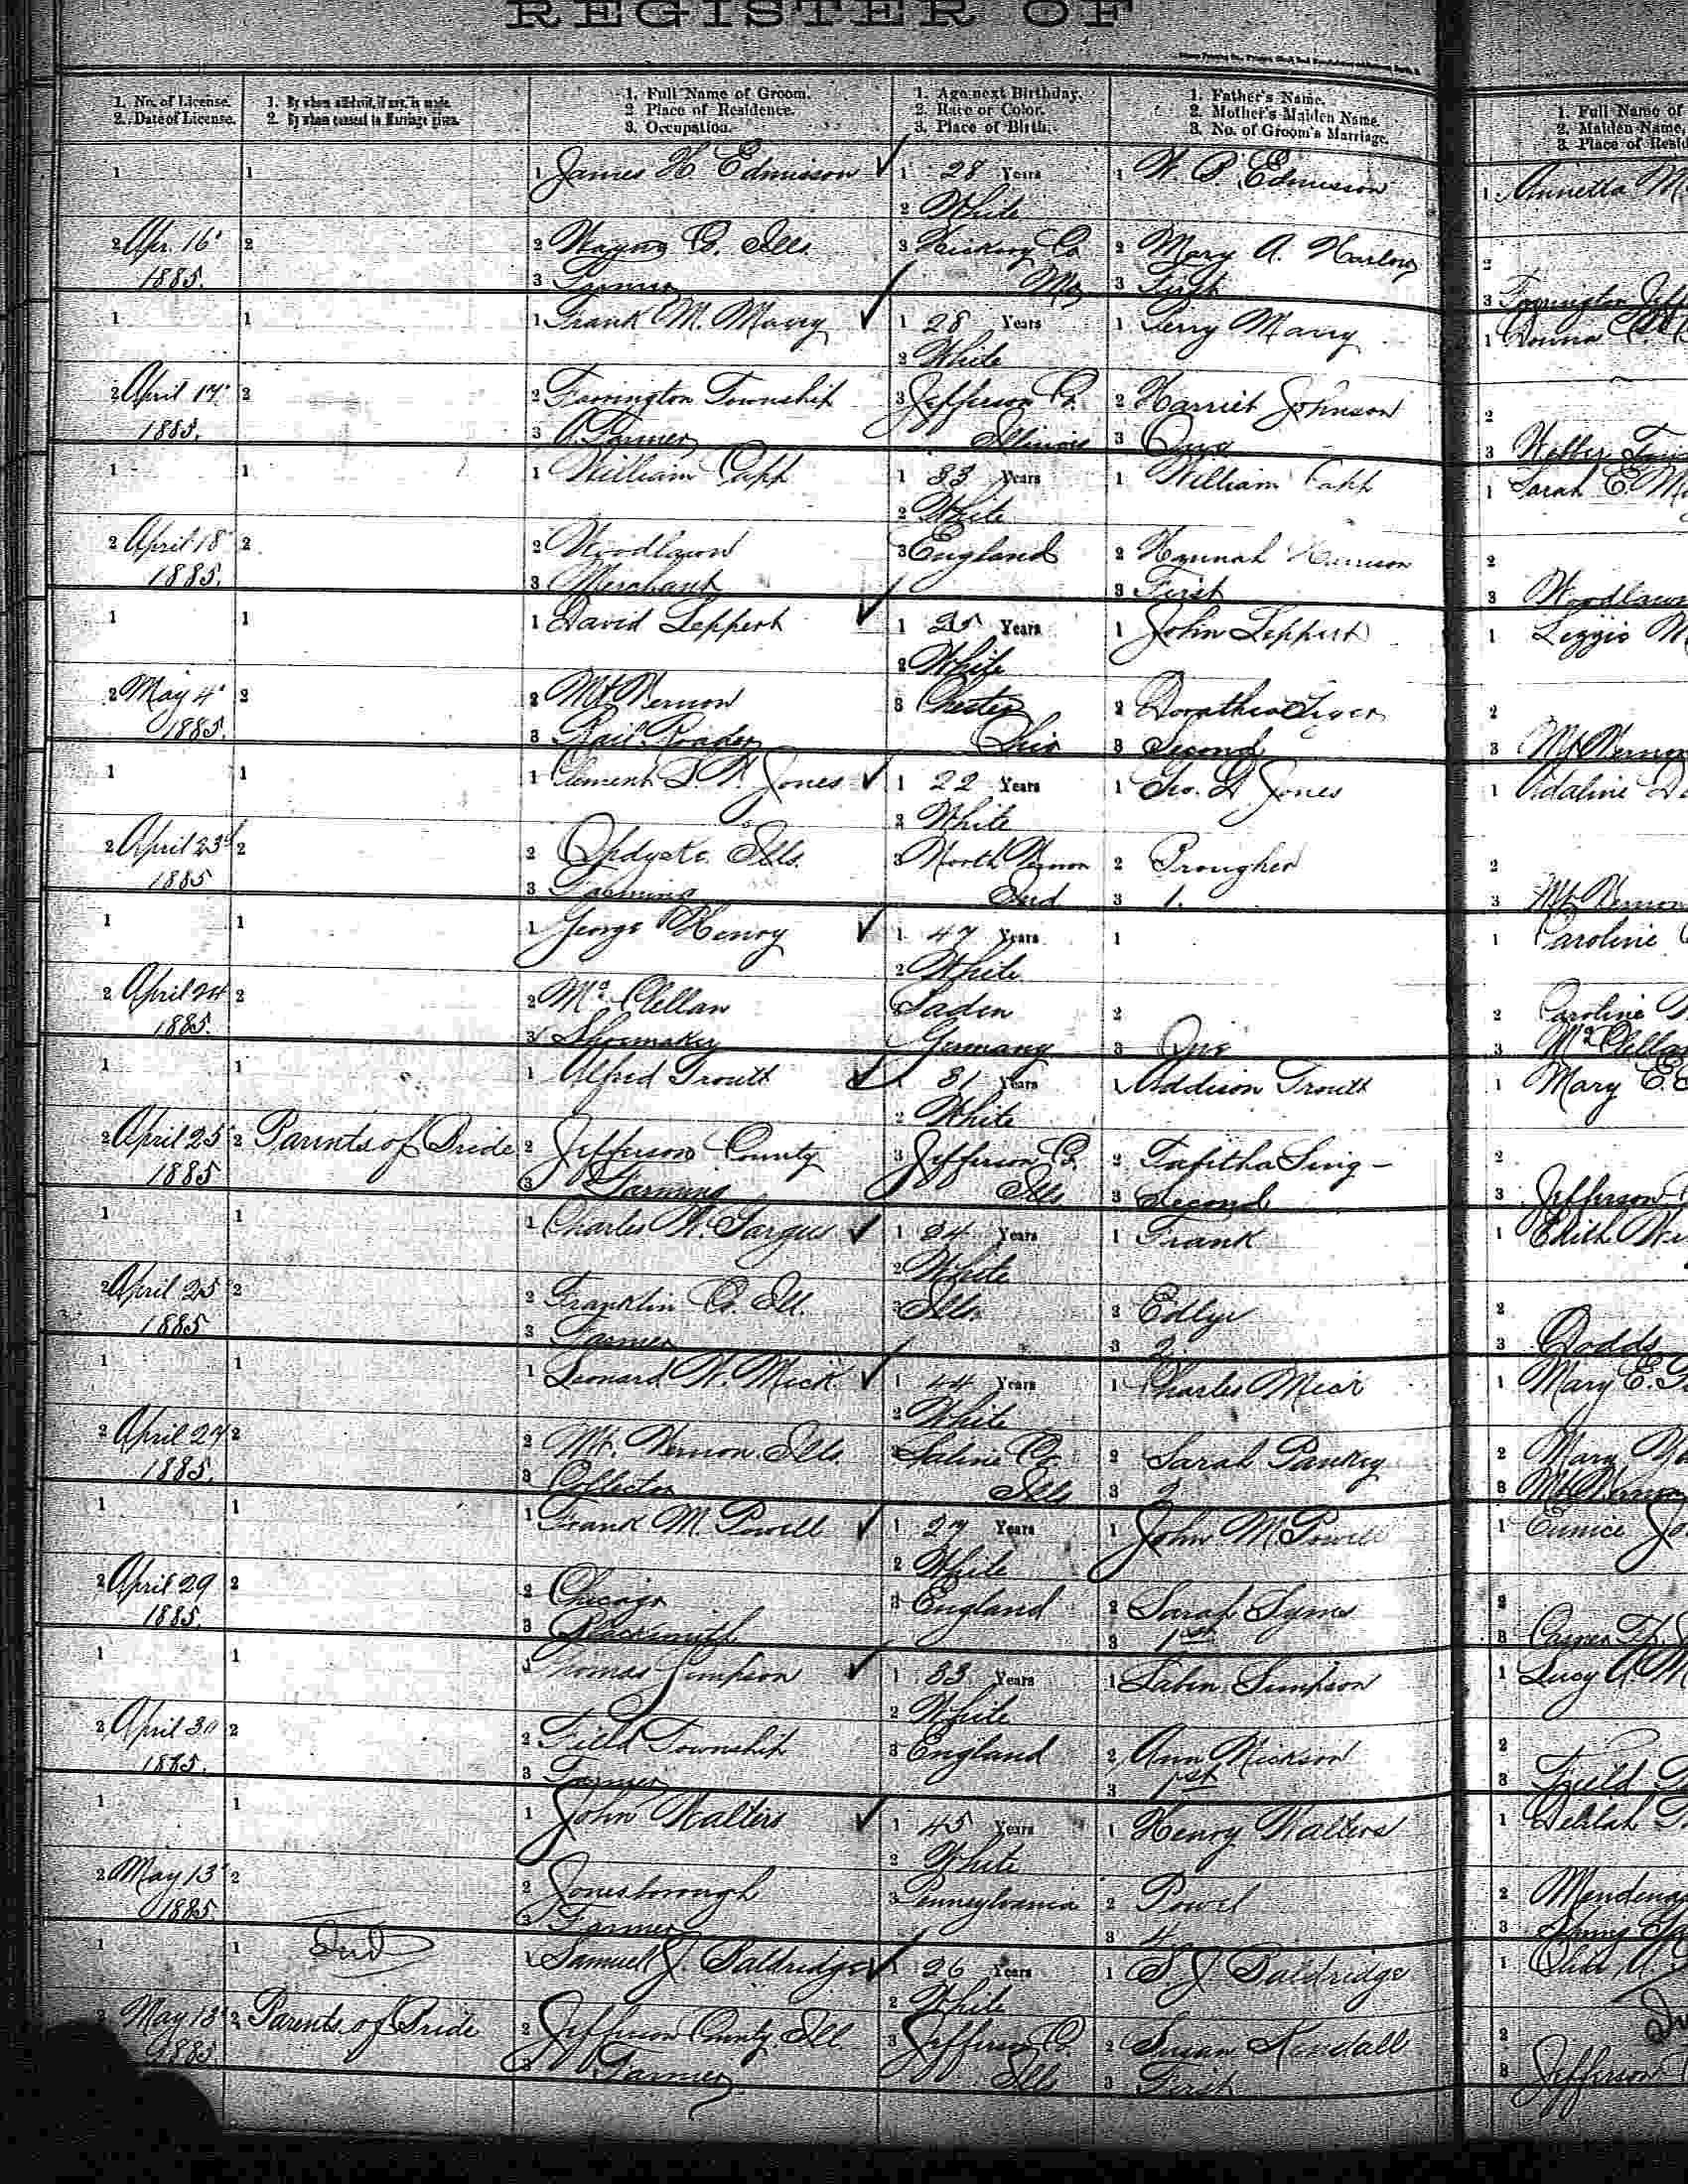 REGISTER OF
1. No. of License.
2. Date of License.
1. By whom affidavit, if any, is made.
2. By whom consent to Marriage given.
1. Full Name of Groom.
2 Place of Residence.
3. Occupation.
1. Age next Birthday.
2. Race or Color.
3. Place of Birth.
1. Father's Name.
2. Mother's Maiden Name.
3. No. of Groom's Marriage.
1. Full Name of
2. Maiden Name,
3. Place of Resid
1 1 1 James H Edmisson ✓ 1 28 Years 1 W. P. Edmisson 1 Annetta M.
2 White
2 Apr. 16 2 2 Wayne Co. Ills. 3 Hickory Co. 2 Mary A. Harlow 2
1885. 3 Farmer Mo 3 First 3 Farrington Jeff
1 1 1 Frank M. Mavry ✓ 1 28 Years 1 Perry Mavry 1 Donna
2 White
2 April 17 2 2 Farrington Township 3 Jefferson Co. 2 Harriet Johnson 2
1885. 3 A Farmer Illinois 3 One 3
1 1 1 William Capp 1 33 Years 1 William Capp 1 Sarah E. M
2 White
2 April 18 2 2 Woodlawn 3 England 2 Hannah Harrison 2
1885. 3 Merchant 3 First 3 Woodlawn
1 1 1 David Leppert ✓ 1 25 Years 1 John Leppert 1 Lizzie M
2 White
2 May 4 2 2 Mt Vernon 3 Chester 2 Dorathea 2
1885. 3 Rail Roader Ohio 3 Second 3 Mt Vernon
1 1 1 Clement L. V. Jones ✓ 1 22 Years 1 Geo. W Jones 1 Adaline
2 White
2 April 23d 2 2 Opdyke. Ills. 3 North Vernon 2 Prougher 2
1885 3 Farming Ind 3 1. 3 Mt Vernon
1 1 1 George Henry ✓ 1 47 Years 1 1 Caroline
2 White
2 April 24 2 2 McClellan Baden 2 2 Caroline
1885. 3 Shoemaker Germany 3 One 3 McClellan
1 1 1 Alfred Troutt ✓ 1 31 Years 1 Addison Troutt 1 Mary E.
2 White
2 April 25 2 Parents of Bride 2 Jefferson County 3 Jefferson Co. 2 Tabitha 2
1885 3 Farming Ills. 3 Second 3 Jefferson
1 1 1 Charles W. Fargus ✓ 1 24 Years 1 Frank 1 Edith
2 White
2 April 25 2 2 Franklin Co. Ill. 3 Ills. 2 Edlyn 2
1885 3 Farmer 3 2. 3 Dodds
1 1 1 Leonard W. Mick ✓ 1 44 Years 1 Charles Mick 1 Mary E.
2 White
2 April 27 2 2 Mt. Vernon Ills. Saline Co. 2 Sarah Pankey 2 Mary
1885. 3 Collector Ills 3 2 3 Mt Vernon
1 1 1 Frank M. Powell ✓ 1 27 Years 1 John M. Powell 1 Eunice
2 White
2 April 29 2 2 Chicago 3 England 2 Sarah Syms 2
1885. 3 Blacksmith 3 1st 3
1 1 1 Thomas Simpson ✓ 1 33 Years 1 Simpson 1 Lucy A. M
2 White
2 April 30 2 2 Field Township 3 England 2 Ann Hickson 2
1885. 3 Farmer 3 1st 3 Field
1 1 1 John Walters ✓ 1 45 Years 1 Henry Walters 1 Delilah
2 White
2 May 13 2 2 Jonesborough 3 Pennsylvania 2 Powel 2
1885. 3 Farmer 3 4 3
1 1 1 Samuel J. Baldridge ✓ 1 26 Years 1 S. J. Baldridge 1
2 White
2 May 13 2 Parents of Bride 2 Jefferson County, Ill. 3 Jefferson Co. 2 Susan Kendall 2
1885. 3 Farmer Ills 3 First 3 Jefferson